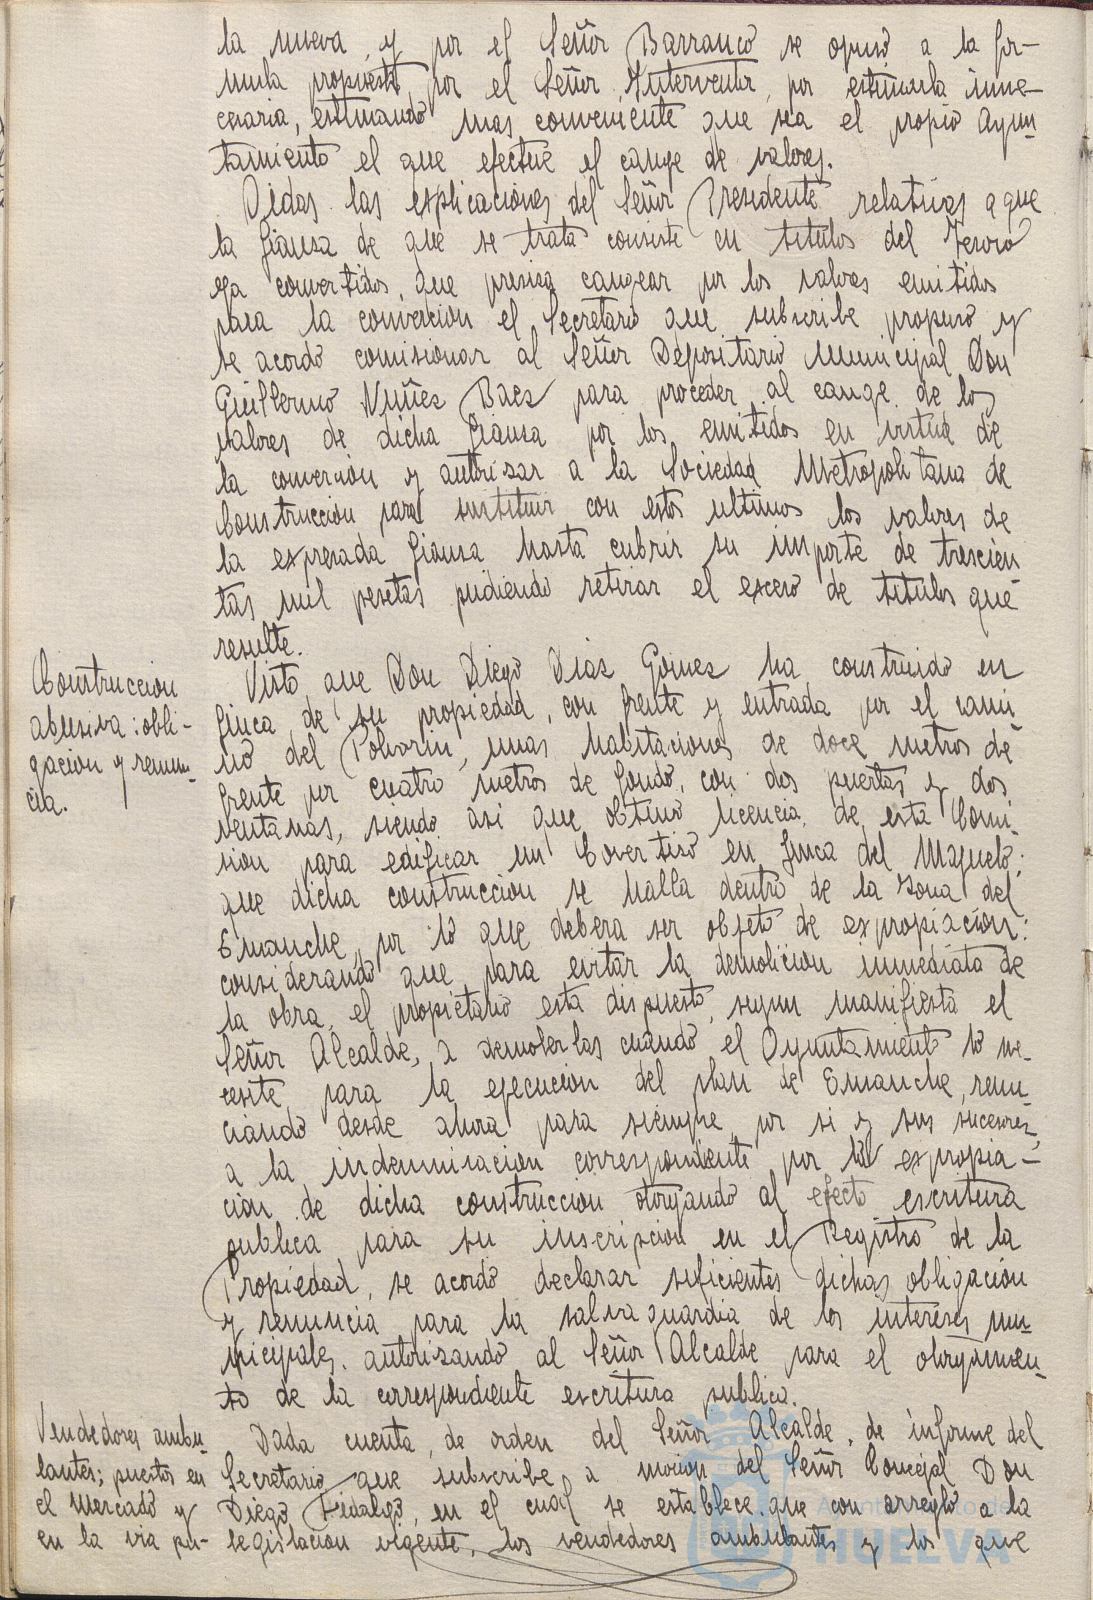 la nueva, y por el Señor Barranco se opuso a la for-
mula propuesta por el Señor Interventor, por estimarla inne-
cesaria, estimando mas conveniente que sea el propio Ayun-
tamiento el que efectue el cange de valores.
Oidas las explicaciones del Señor Presidente relativas a que
la fianza de que se trata consiste en titulos del Tesoro
ya convertidos, que precisa cangear por los valores emitidos
para la conversion el Secretario que subscribe propuso y
se acordo comisionar al Señor Depositario Municipal Don
Guillermo Nuñez Baez para proceder al cange de los
valores de dicha fianza por los emitidos en virtud de
la conversion y autorizar a la Sociedad Metropolitana de
Construccion para sustituir con estos ultimos los valores de
la expresada fianza hasta cubrir su importe de trescien-
tas mil pesetas pudiendo retirar el exceso de titulos que
resulte.
Construccion
abusiva: obli-
gacion y renun-
cia.
Visto que Don Diego Diaz Gomez ha construido en
finca de su propiedad, con frente y entrada por el cami-
no del Polvorin, unas habitaciones de doce metros de
frente por cuatro metros de fondo, con dos puertas y dos
ventanas, siendo asi que obtuvo licencia de esta Comi-
sion para edificar un Covertizo en finca del Majuelo;
que dicha construccion se halla dentro de la Zona del
Ensanche, por lo que debera ser objeto de expropiacion:
considerando que para evitar la demolicion inmediata de
la obra, el propietario esta dispuesto, segun manifiesta el
Señor Alcalde, a demolerlas cuando el Ayuntamiento lo ne-
cesite para la ejecucion del plan de Ensanche, renun-
ciando desde ahora para siempre, por si y sus sucesores,
a la indemnizacion correspondiente por la expropia-
cion de dicha construccion otorgando al efecto escritura
publica para su inscripcion en el Registro de la
Propiedad, se acordo declarar suficientes dichas obligacion
y renuncia para la salvaguardia de los intereses mu-
nicipales. autorizando al Señor Alcalde para el otorgamien-
to de la correspondiente escritura publica.
Vendedores ambu-
lantes; puestos en
el Mercado y
en la via pu-
Dada cuenta, de orden del Señor Alcalde, de informe del
Secretario que subscribe, a mocion del Señor Concejal Don
Diego Hidalgo, en el cual se establece que con arreglo a la
legislacion vigente, los vendedores ambulantes y los que
Ayuntamiento de
HUELVA